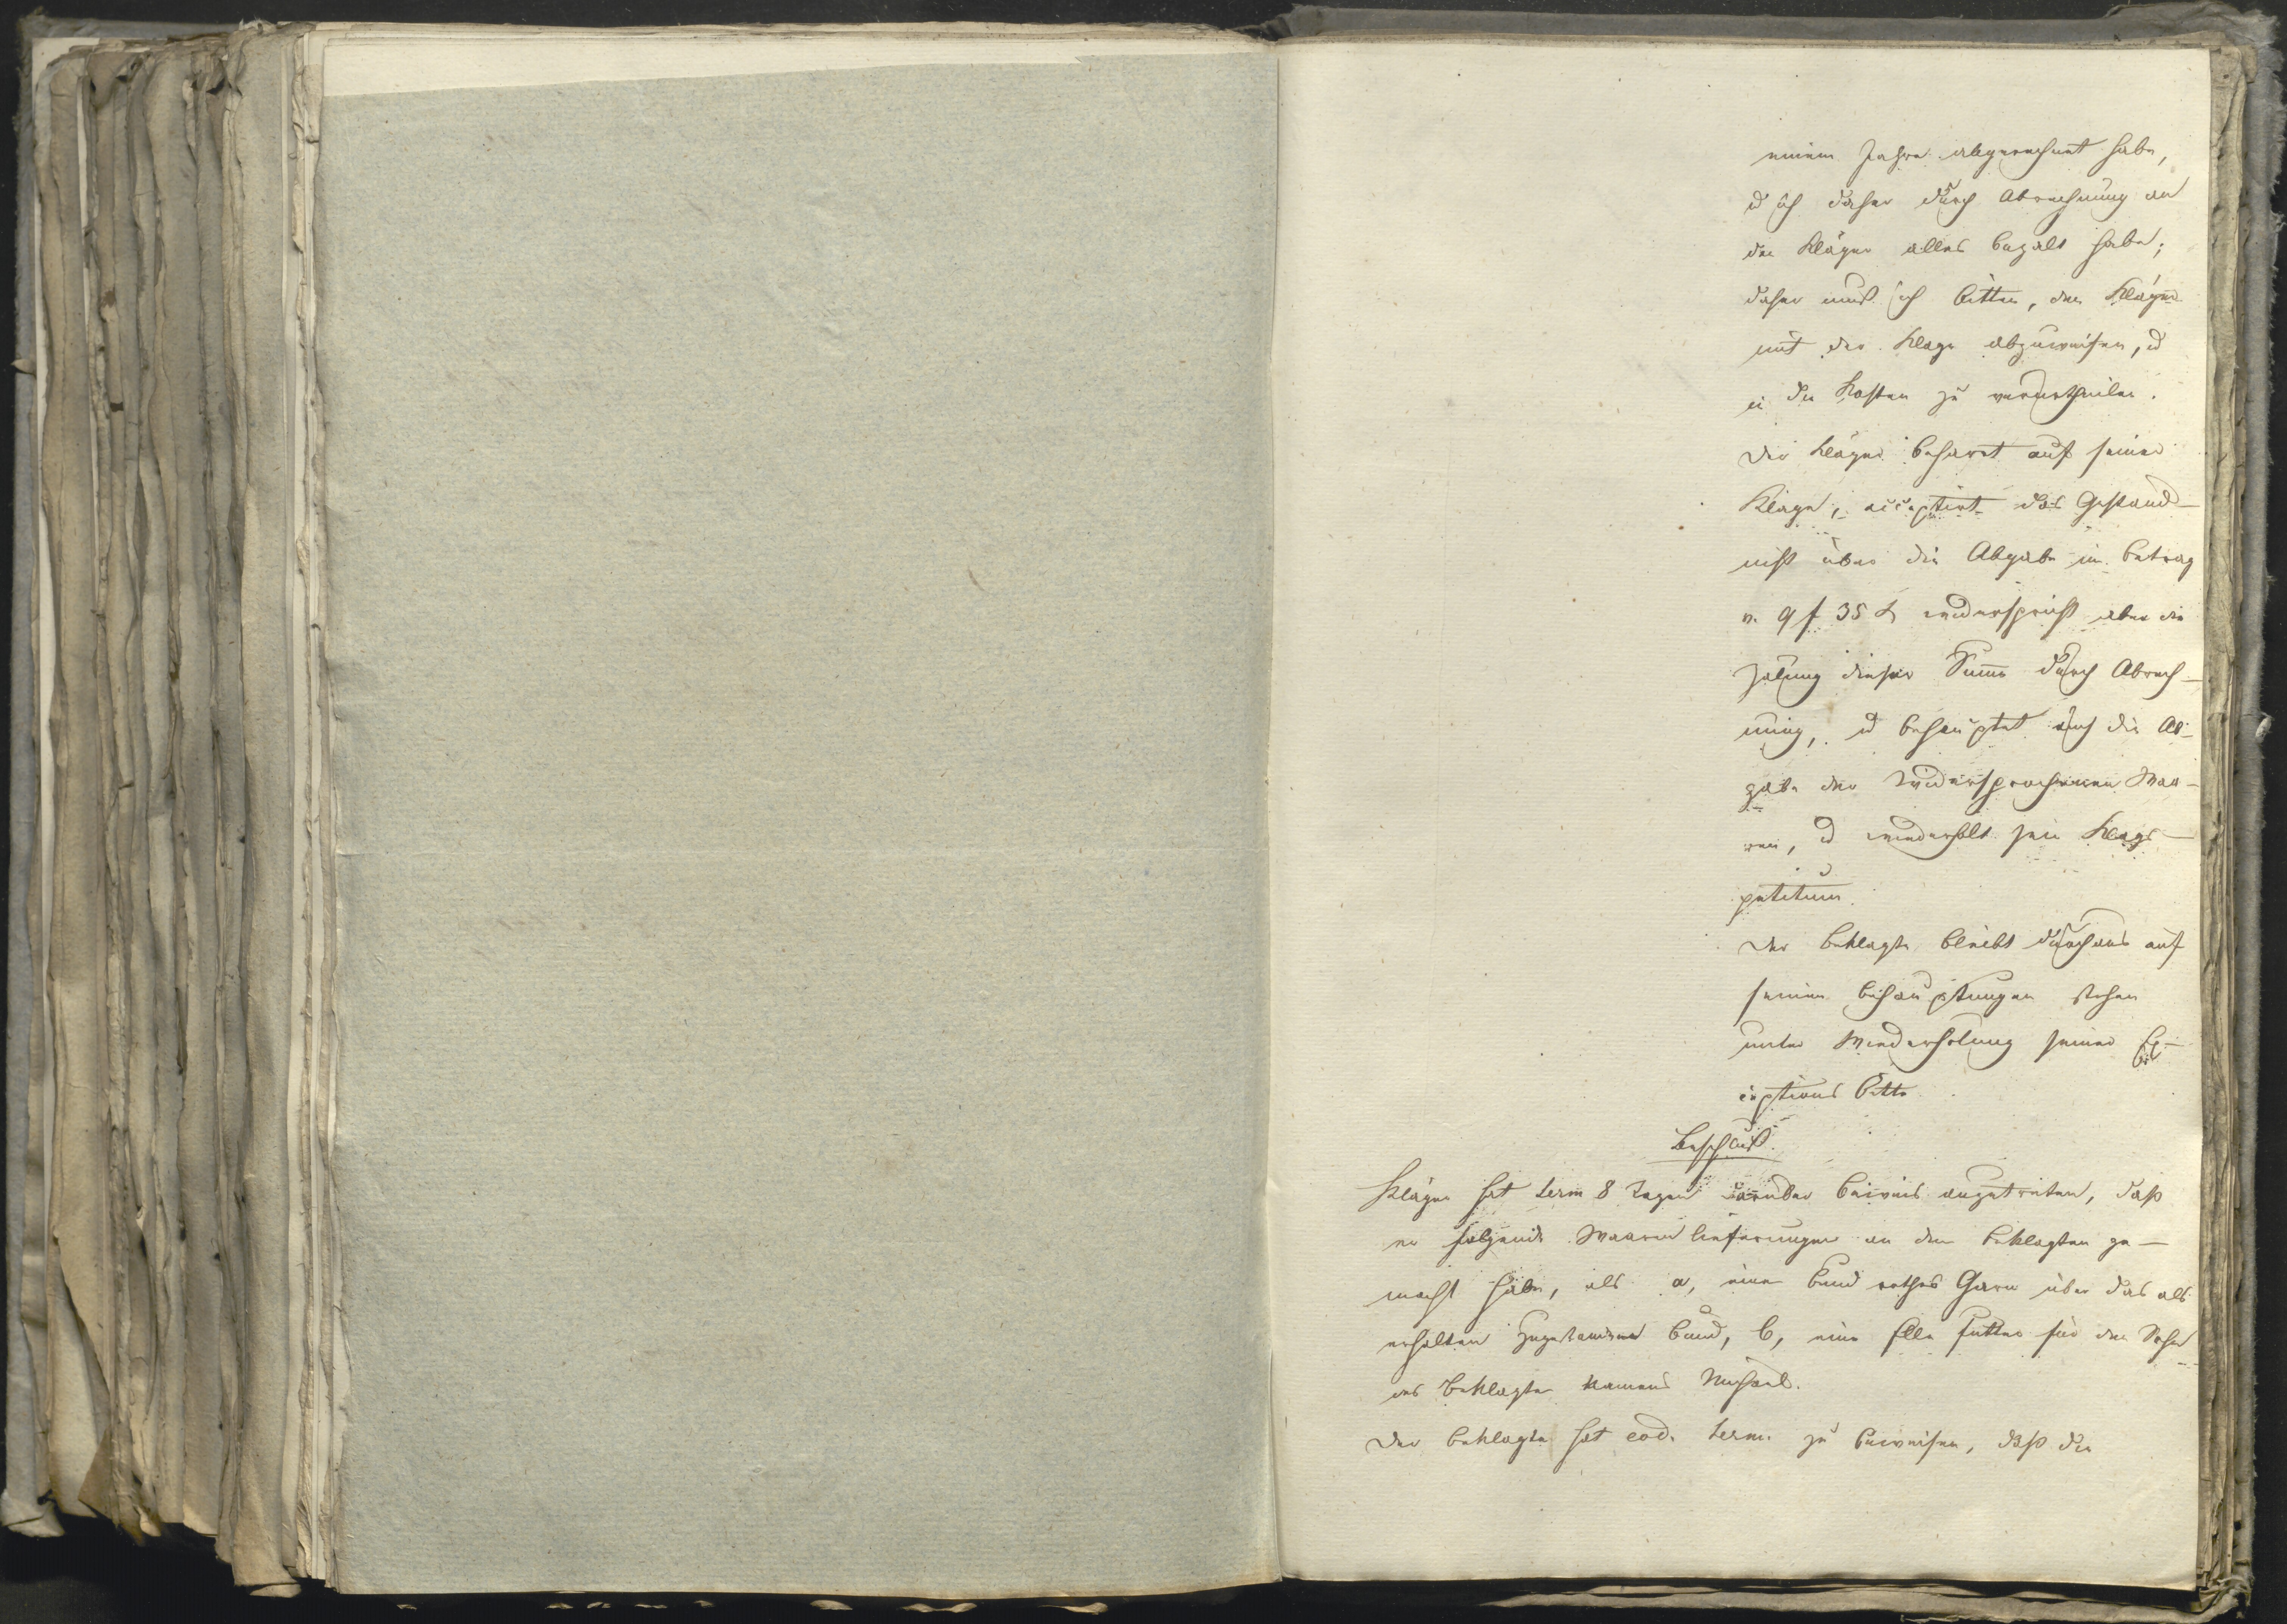 einem Jahre abgerechnet habe,
u ich daher durch Abrechnung an
den Kläger alles bezalt habe;
daher muß ich bitten, den Kläger
mit der Klage abzuweisen, u
in die Kosten zu verurtheilen.
Der Kläger beharrt auf seiner
Klage, acceptirt das Geständ-
niß über die Abgabe im Betrag
v. 9 f 35 x widerspricht aber die
Zalung dieser Summe durch Abrech-
nung, u behauptet auch die Ab-
gabe der widersprochenen Waa-
ren, u wiederholt sein Klags-
petitum.
Der Beklagte bleibt durchaus auf
seinen Behauptungen stehen
unter Wiederholung seiner Ex-
ceptions Bitte
Beschluß.
Kläger hat term 8 Tagen darüber Beweis anzutreten, daß
er folgende Waaren lieferungen an den Beklagten ge-
macht habe, als a, einen Bund rothes Garn über das als
erhalten zugestandene Bund, b, eine Elle Futter für den Sohn
des Beklagten Namens Michael.
Der Beklagte hat eod. term. zu beweisen, daß die